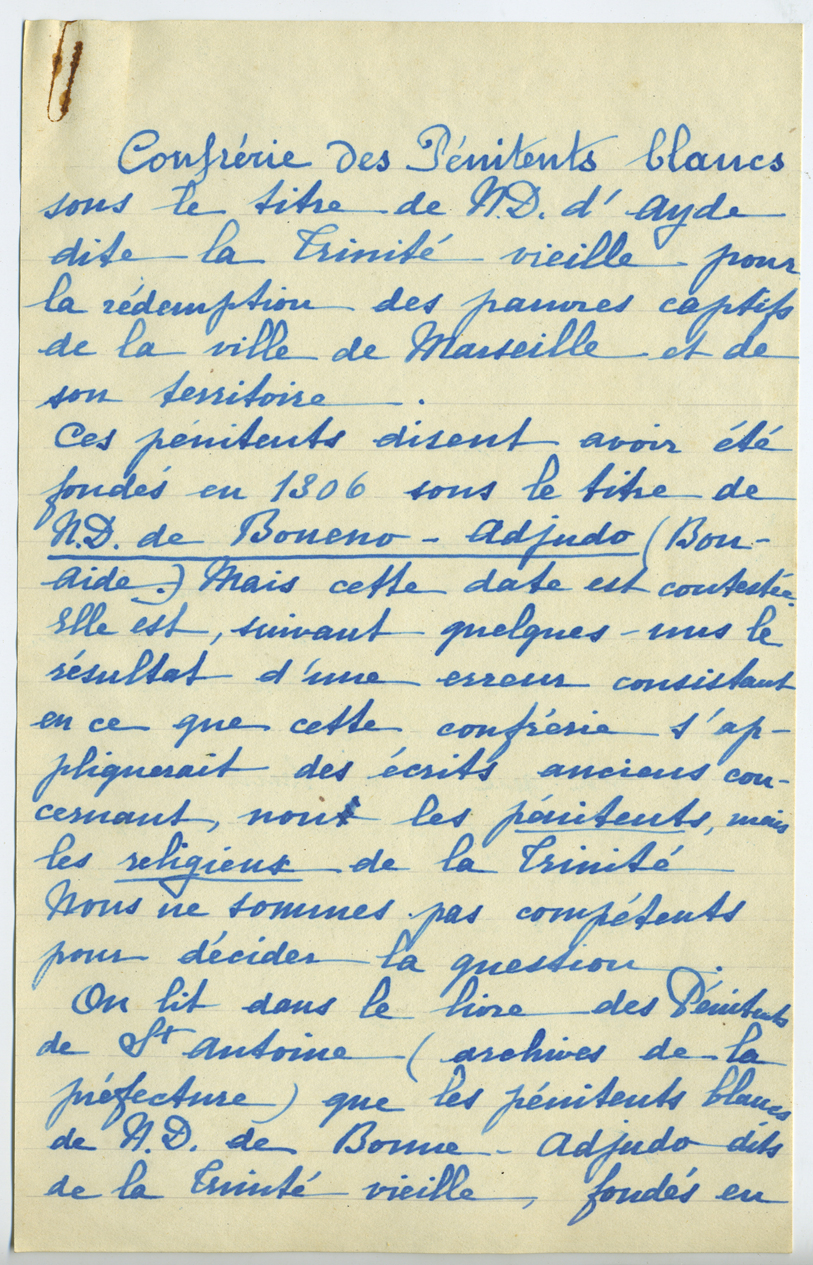 Confrérie des Pénitents blancs
sous le titre de N.D. d'Ayde
dite la Trinité vieille pour
la rédemption des pauvres captifs
de la ville de Marseille et de
son territoire.
Ces pénitents disent avoir été
fondés en 1306 sous le titre de
N.D. de Boueno - adjudo (Bon-
aide.) Mais cette date est contestée.
Elle est, suivant quelques-uns le
résultat d'une erreur consistant
en ce que cette confrérie s'ap-
pliquerait des écrits anciens con-
cernant, non les pénitents, mais
les religieux de la Trinité
Nous ne sommes pas compétents
pour décider la question.
On lit dans le livre des Pénitents
de St Antoine (archives de la
préfecture) que les pénitents blancs
de N.D. de Bonne - adjudo dits
de la Trinité vieille, fondés en